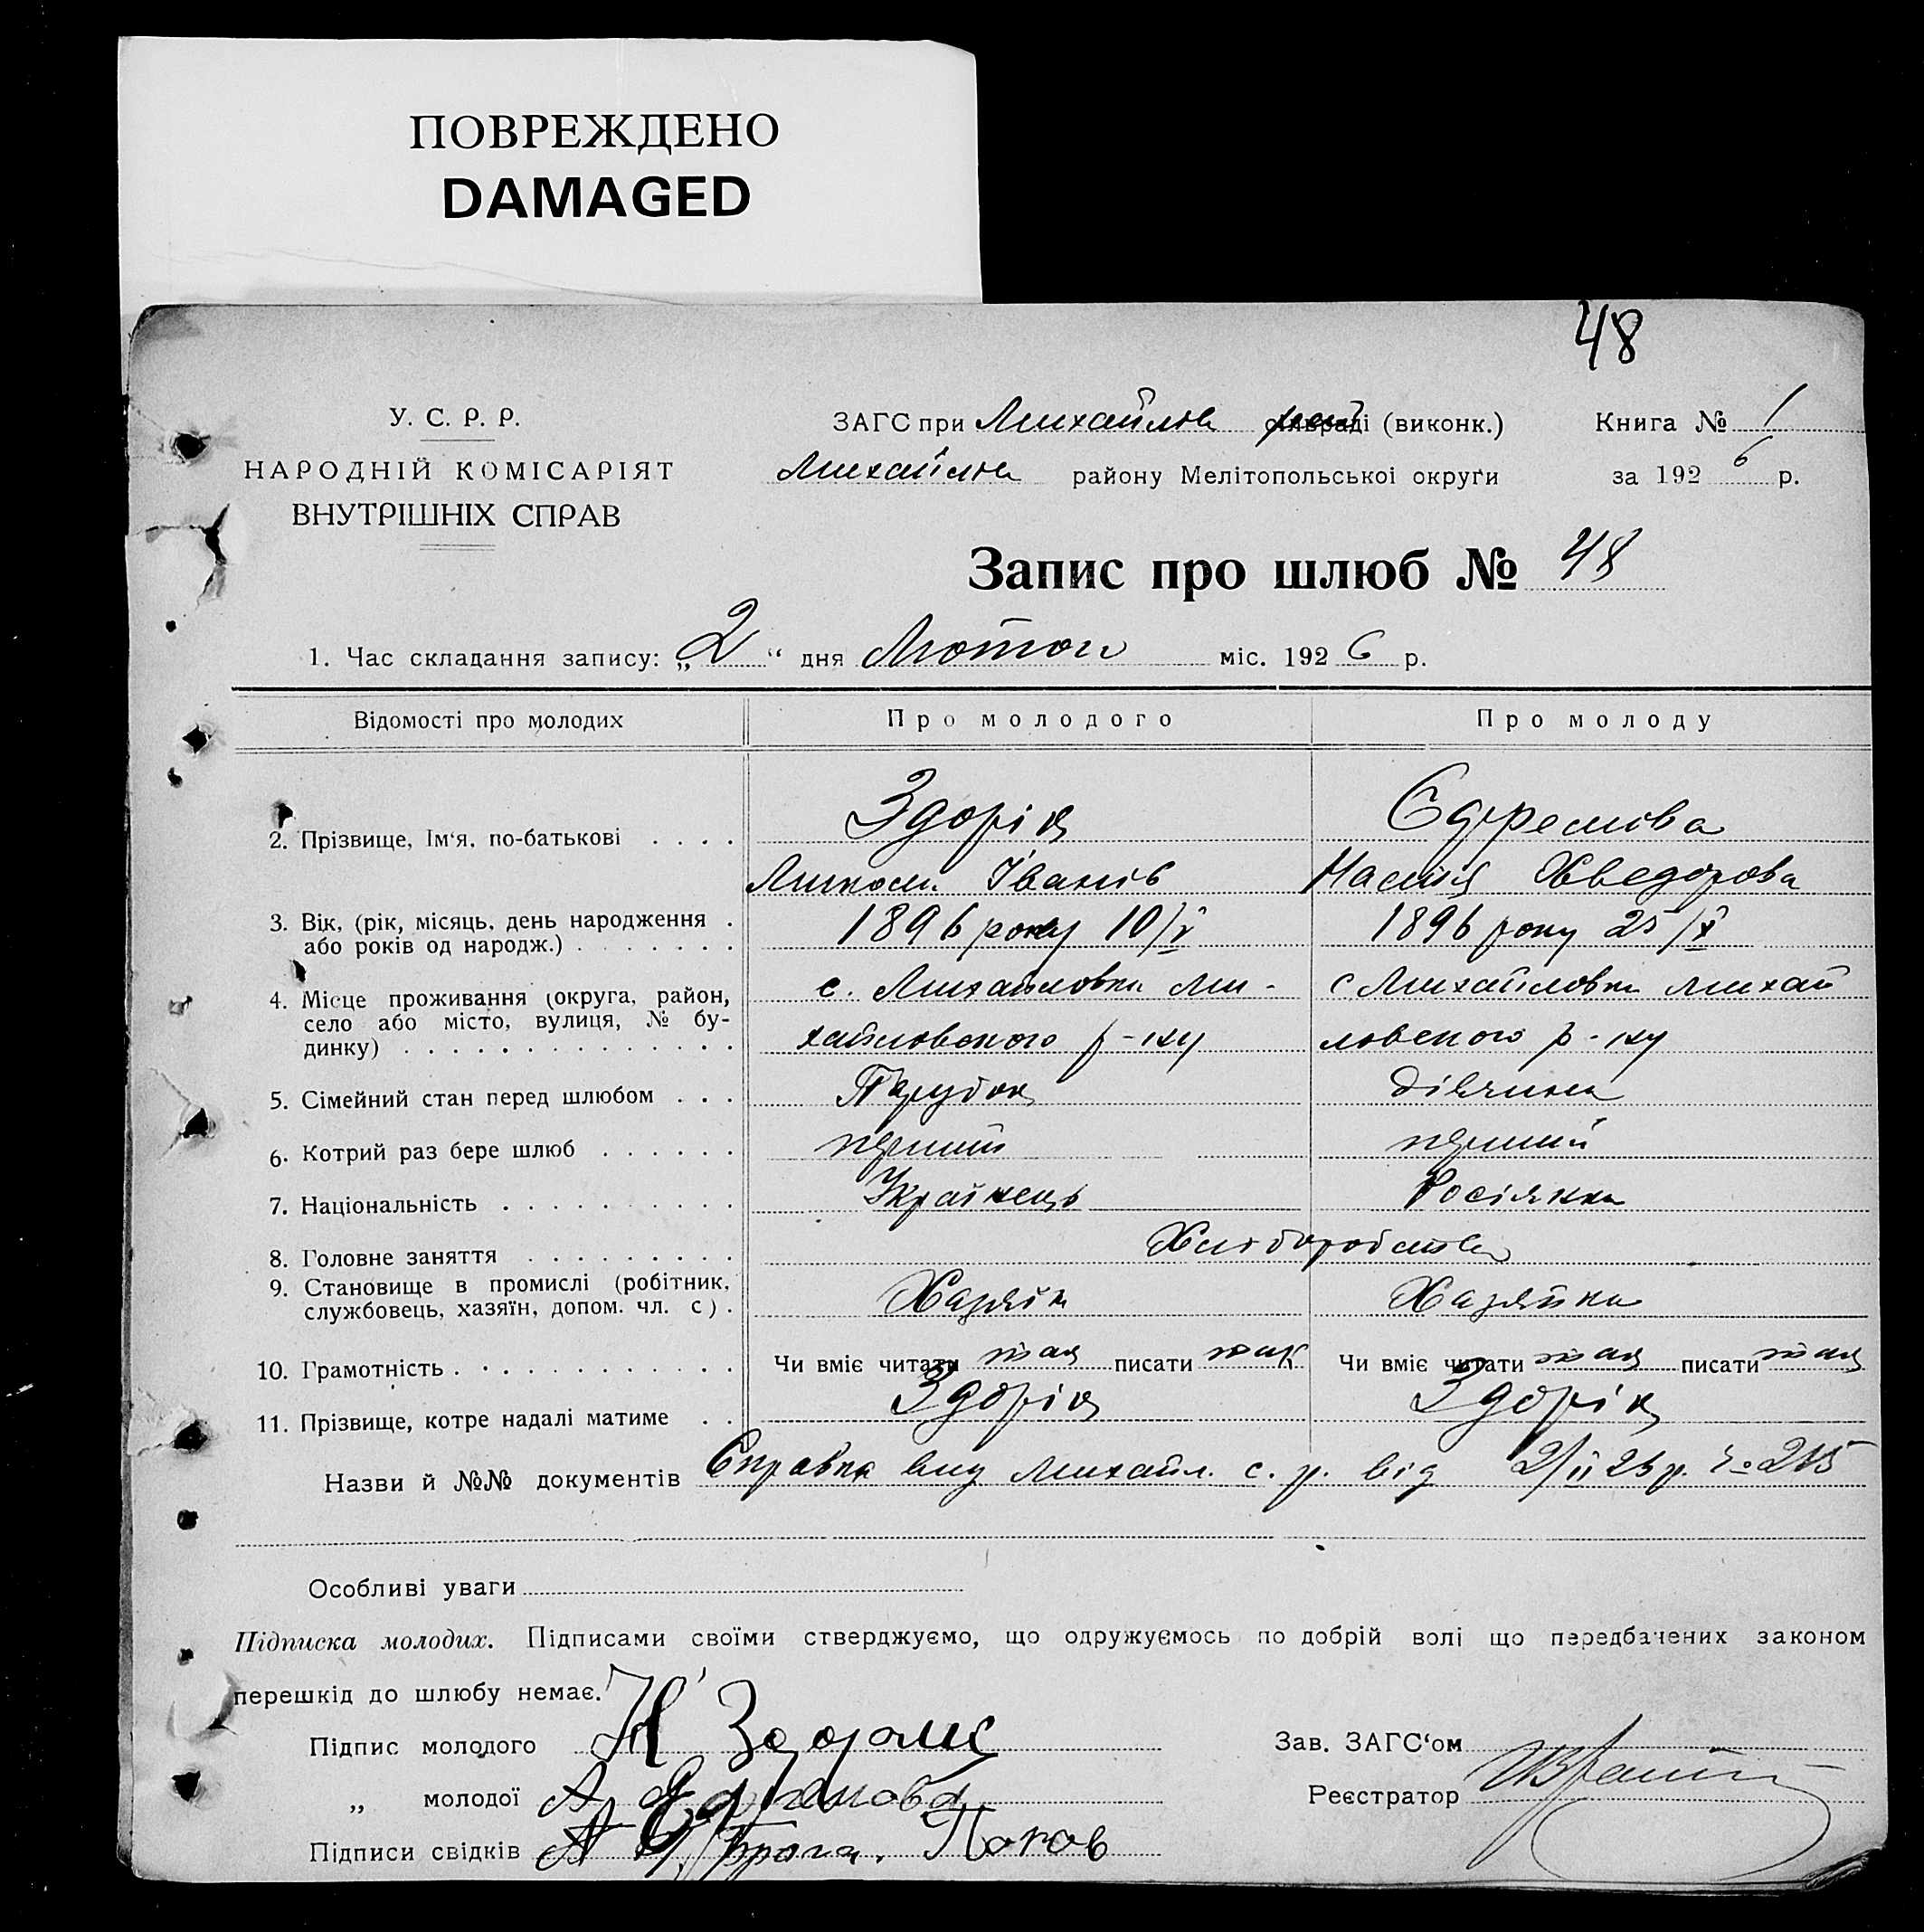 ПОВРЕЖДЕНО
DAMAGED
48
У. С. Р. Р.
НАРОДНІЙ КОМІСАРІЯТ
ВНУТРІШНІХ СПРАВ
ЗАГС при Михайлов (виконк.)
Книга № 1
Михайлов району Мелітопольської округи
за 1926 р.
Запис про шлюб № 48
1. Час складання запису: „2“ дня Лютого міс. 1926 р.
Відомості про молодих
Про молодого
Про молоду
2. Прізвище, Ім‘я, по-батькові . . . .
Здорік
Єфремова
Іванів
Настя Хведорова
3. Вік, (рік, місяць, день народження .
або років од народж.) . . . . . . .
1896 року 10/V
1896 року 25/X
4. Місце проживання (округа, район,
село або місто, вулиця, № бу-
динку) . . . . . . . . . . . . . .
с. Михайловка Ми-
хайловского р-ну
с Михайловка Михай
ловского р-ну
5. Сімейний стан перед шлюбом . . .
Парубок
дівчина
6. Котрий раз бере шлюб . . . . . .
перший
перший
7. Національність . . . . . . . . . .
Українець
Росіянка
8. Головне заняття . . . . . . . . .
Хліборобство
9. Становище в промислі (робітник,
службовець, хазяїн, допом. чл. с) .
Хазяїн
Хазяйка
10. Грамотність . . . . . . . . . . .
Чи вміє читати так писати так
Чи вміє читати так писати так
11. Прізвище, котре надалі матиме . .
Здорік
Здорік
Назви й №№ документів Справка Михайл. с. р. від 2/II 26 р. № 215
Особливі уваги
Підписка молодих. Підписами своїми стверджуємо, що одружуємось по добрій волі що передбачених законом
перешкід до шлюбу немає.
Підпис молодого Н Здорик
Зав. ЗАГС‘ом
„ молодої А Ефремова
Реєстратор
Підписи свідків Попов